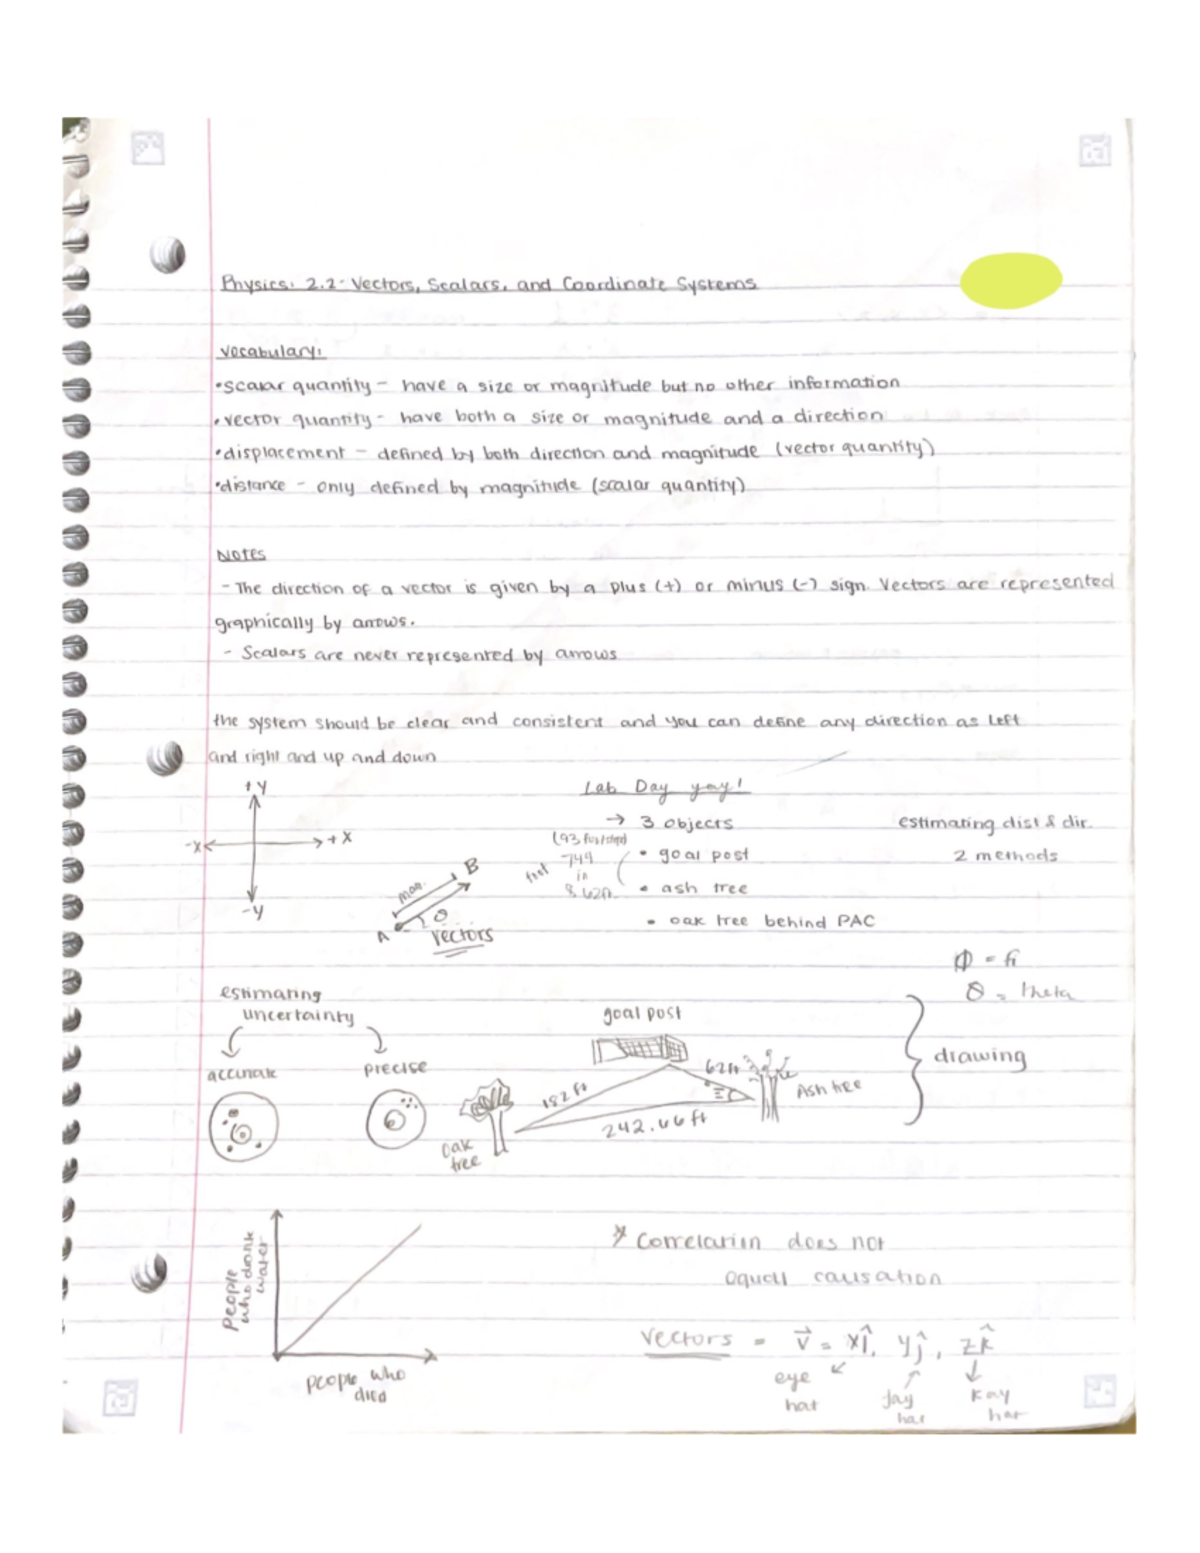 Physics: 2.2- Vectors, Scalars, and Coordinate Systems
Vocabulary:
•scalar quantity - have a size or magnitude but no other information
•vector quantity - have both a size or magnitude and a direction
•displacement - defined by both direction and magnitude (vector quantity)
•distance - only defined by magnitude (scalar quantity)
Notes
- The direction of a vector is given by a plus (+) or minus (-) sign. Vectors are represented
graphically by arrows.
- Scalars are never represented by arrows
the system should be clear and consistent and you can define any direction as left
and right and up and down
+y
-x
+x
-y
mag.
B
θ
A
Vectors
Lab Day yay!
→ 3 objects
• goal post
• ash tree
• oak tree behind PAC
749
in
estimating dist & dir.
2 methods
Φ = fi
θ = theta
estimating
uncertainty
accurate
precise
goal post
182 ft
62ft
242.66 ft
Ash tree
oak
tree
drawing
People
who drank
water
people who
died
* Correlation does not
equall causation
Vectors = v⃗ = xî, yĵ, zk̂
eye
hat
jay
hat
kay
hat